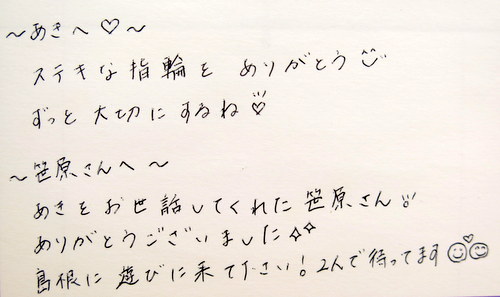 ～あきへ♡～
ステキな指輪を ありがとう
ずっと大切にするね♡
～笹原さんへ～
あきをお世話してくれた笹原さん!!
ありがとうございました✧✧
島根に遊びに来て下さい！2人で待ってます